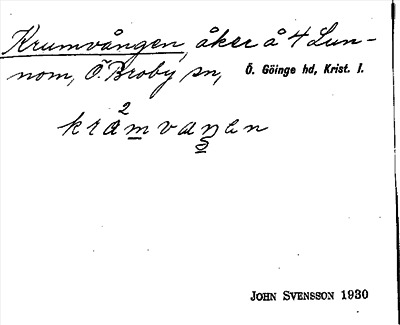 Krumvången, åker å 4 Lun-
nom, Ö. Broby sn, Ö. Göinge hd, Krist. l.
2
kråmvaŋen
2
JOHN SVENSSON 1930